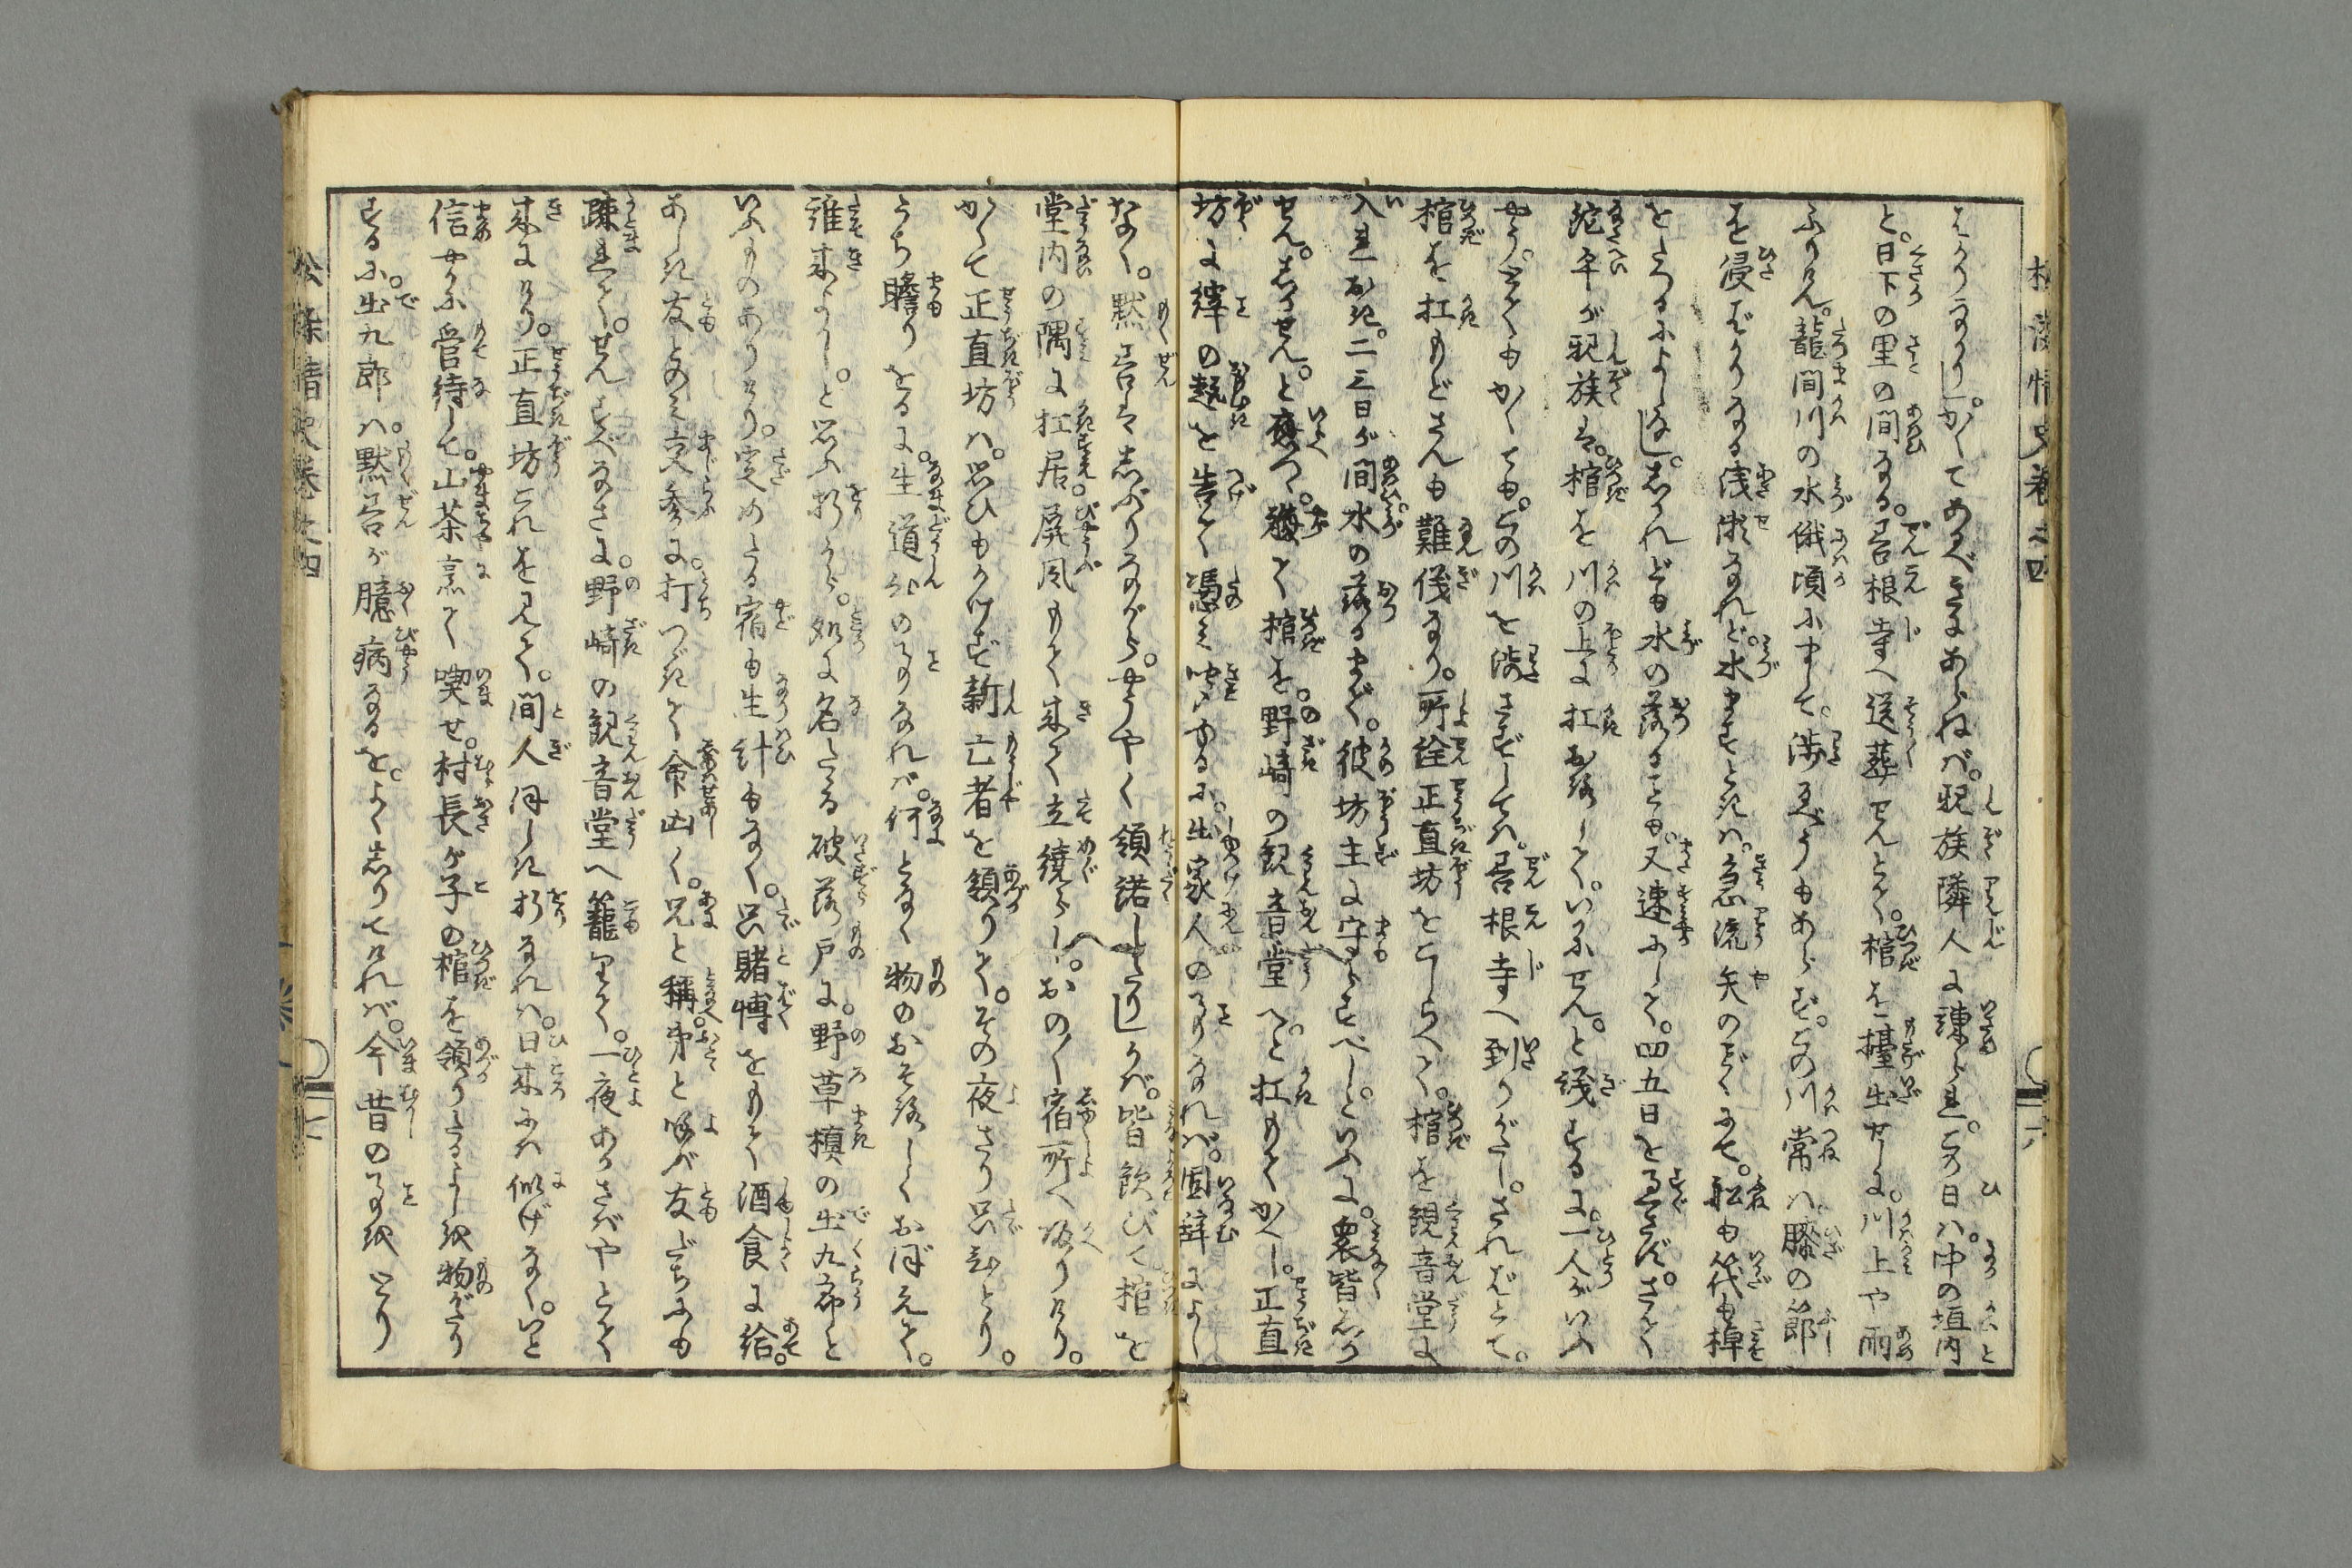 ばかりなり。」かくてあるべきにあらねバ。親族隣人に諫られ。その日ハ。中の垣内
と。日下の里の間なる。善根寺へ送葬せんとて。棺を擡出せしに。川上や雨
ふりけん。龍間川の水俄頃にまして。渉るべうもあらず。この川常ハ膝の節
を浸すばかりなる浅瀬なれど。水ますときハ。急流矢のごとくにて。船も筏も棹
をとるによしなし。」しかれども水の落ることも。又速にして。四五日を過さず。さて
佗平が親族は。棺を川の上に扛おろして。いかにせん。と議するに。一人がいふ
やう。とてもかくても。この川を渉さずしてハ。善根寺へ到りがたし。さればとて。
棺を扛もどさんも難儀なり。所詮正直坊をこしらへて。棺を観音堂に
入れおき。二三日が間水の落るまで。彼坊主に守らすべし。といふに。衆皆しか
せん。しかせん。と應つ。軈て棺を。野崎の観音堂へと扛もてゆくし。正直
坊に縡の趣を告て憑み聞ゆるに。出家人の事なれバ。固辞によし
なく。默善はしぶりながら。やうやく領諾したりしかバ。皆歓びて棺を
堂内の隅に扛居。屏風もて来て立繞らし。おの〳〵宿所へ返りけり。
かくて正直坊ハ。思ひもかけず新亡者を領りて。その夜さり只ひとり。
うち瞻りをるに。生道心の事なれバ。何となく物のおそろしくおぼえて。
誰来よかし。と思ふ折から。処に名たる破落戸に。野草槙の出九郎と
いふものありけり。定めたる宿も生計もなく。只賭博をもて酒食に給。
あしき友とのみ交参に。打つゞきて命凶く。兄と称。弟と呼バ友だちにも
疎れて。せんすべなさに。野崎の観音堂へ籠りて。一夜あかさばやとて
来にけり。正直坊これを見て。間人ほしき折なれバ。日来にハ似げなく。いと
信やかに管待して。山茶烹て喫せ。村長が子の棺を領りたるよし。物がたり
するに。出九郎ハ。默善が臆病なるを。よくしりてけれバ。今昔の事とり
松染情史巻之四
松染情史巻之四